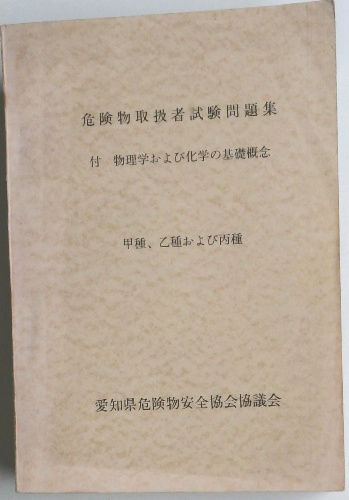 危険物取扱者試験問題集
付　物理学および化学の基礎概念
甲種、乙種および丙種
愛知県危険物安全協会協議会